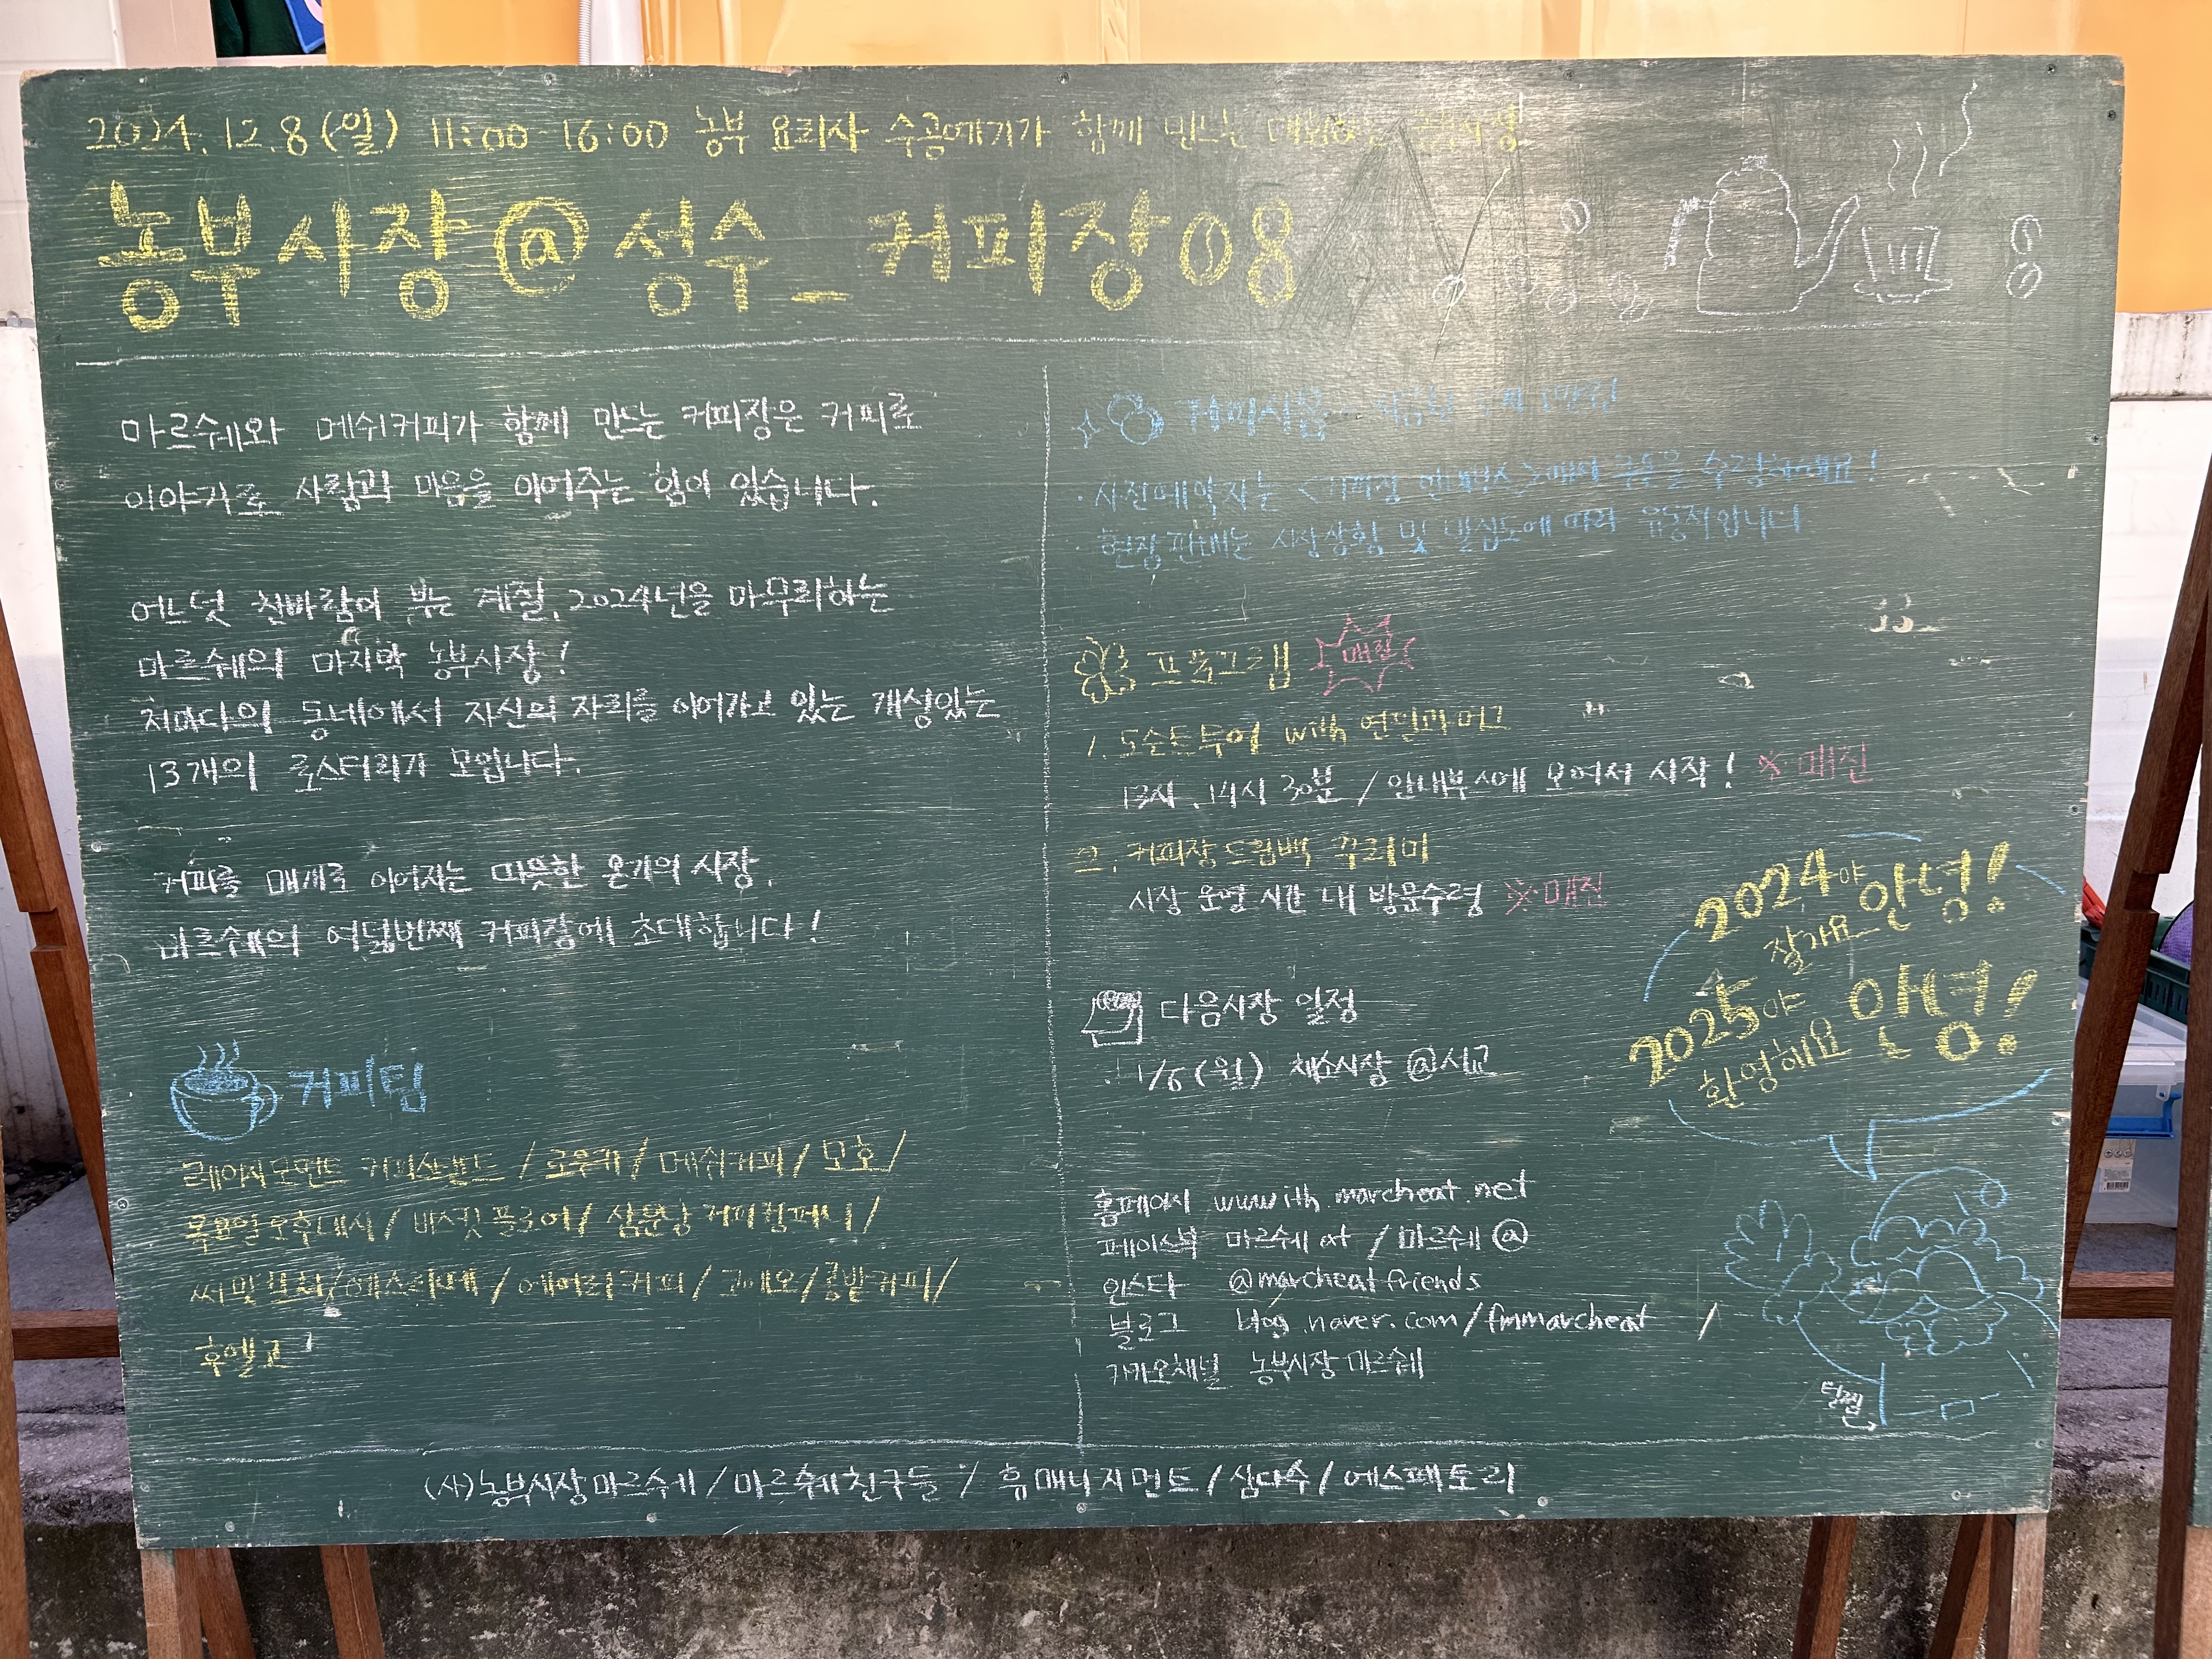 2024.12.8(일) 11:00-16:00 농부 요리사 수공예가가 함께 만드는 대화하는 농부시장
농부시장@성수_커피장08
마르쉐와 메쉬커피가 함께 만드는 커피장은 커피로
이야기로 사람과 마음을 이어주는 힘이 있습니다.
어느덧 찬바람이 부는 계절, 2024년을 마무리하는
마르쉐의 마지막 농부시장!
저마다의 동네에서 자신의 자리를 이어가고 있는 개성있는
13개의 로스터리가 모입니다.
커피를 매개로 이어지는 따뜻한 온기의 시장,
마르쉐의 여덟번째 커피장에 초대합니다!
커피팀
레이지모먼트 커피스탠드 / 로우키 / 메쉬커피 / 모호 /
목요일오후네시 / 바서빗 플로어 / 삼분당 커피컴퍼니 /
씨밋 / 에스리베 / 에어리커피 / 고메오 / 콩밭커피 /
후엘고
커피시음
· 사전예약자는 <커피장 안내부스>에서 쿠폰을 수령하세요!
· 현장 판매는 시장상황 및 밀집도에 따라 유동적입니다
프로그램 매진
1. 도슨트투어 with 연필과머그
13시, 14시 30분 / 안내부스에 모여서 시작! ※매진
2. 커피장 드립백 꾸러미
시장 운영 시간 내 방문수령 ※매진
다음시장 일정
1/6(월) 채소시장 @서교
2024야 안녕!
잘가요
2025야 안녕!
환영해요
홈페이지 wwwith.marcheat.net
페이스북 마르쉐at / 마르쉐@
인스타 @marcheatfriends
블로그 blog.naver.com/fmmarcheat /
카카오채널 농부시장마르쉐
(사)농부시장마르쉐 / 마르쉐친구들 / 휴매니지먼트 / 삼다수 / 에스팩토리